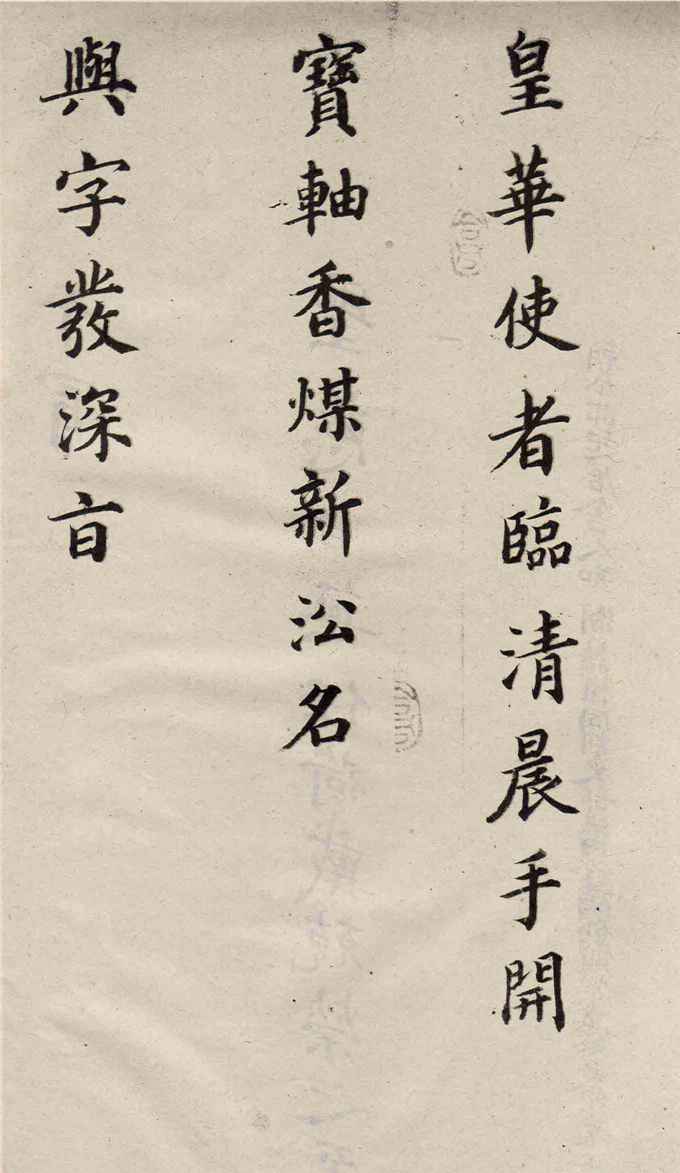 皇華使者臨清晨手開
寶軸香煤新㳂名
與字發深旨